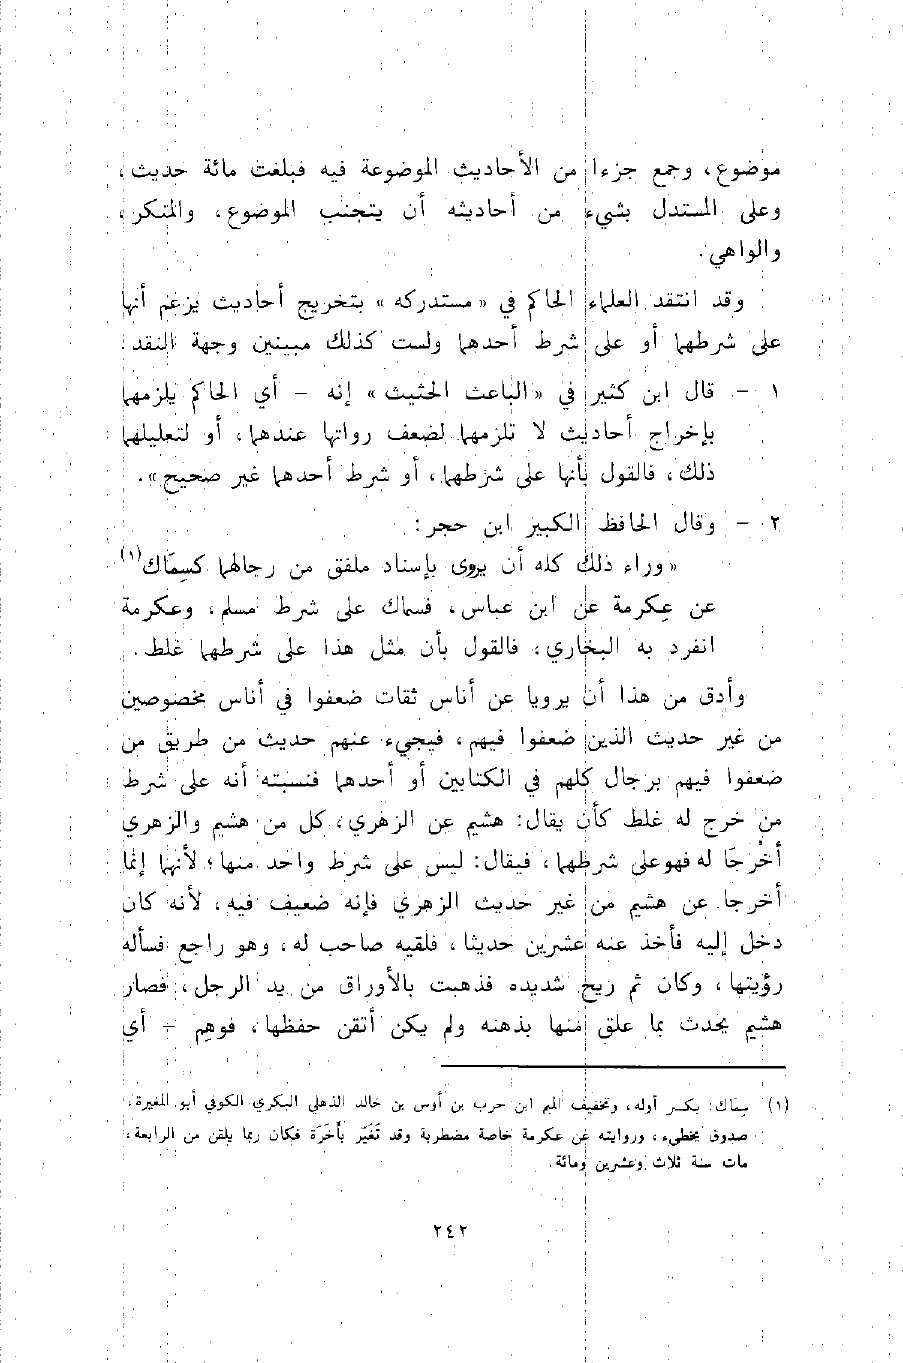 موضوع، وجمع جزءا من الأحاديث الموضوعة فيه فبلغت مائة حديث،
وعلى المستدل بشيء من أحاديثه أن يتجنب الموضوع، والمنكر،
والواهي.
وقد انتقد العلماء الحاكم في «مستدركه» بتخريج أحاديث يزعم أنها
على شرطهما أو على شرط أحدهما ولست كذلك مبينين وجهة النقد:
١ - قال ابن كثير في «الباعث الحثيث» إنه - أي الحاكم يلزمهما
بإخراج أحاديث لا تلزمهما لضعف رواتها عندهما، أو لتعليلهما
ذلك، فالقول بأنها على شرطهما، أو شرط أحدهما غير صحيح».
٢ - وقال الحافظ الكبير ابن حجر:
«وراء ذلك كله أن يروى بإسناد ملفق من رجالهما كسِمَاك(١)
عن عِكرمة عن ابن عباس، فسماك على شرط مسلم، وعكرمة
انفرد به البخاري، فالقول بأن مثل هذا على شرطهما غلط.
وأدق من هذا أن يرويا عن أناس ثقات ضعفوا في أناس مخصوصين
من غير حديث الذين ضعفوا فيهم، فيجيء عنهم حديث من طريق من
ضعفوا فيهم برجال كلهم في الكتابين أو أحدهما فنسبته أنه على شرط
من خرج له غلط كأن يقال: هشيم عن الزهري، كل من هشيم والزهري
أخْرجَا له فهوعلى شرطهما، فيقال: ليس على شرط واحد منهما؛ لأنهما إنما
أخرجا عن هشيم من غير حديث الزهري فإنه ضعيف فيه، لأنه كان
دخل إليه فأخذ عنه عشرين حديثا، فلقيه صاحب له، وهو راجع فسأله
رؤيتها، وكان ثم ريح شديده فذهبت بالأوراق من يد الرجل، فصار
هشيم يحدث بما علق منها بذهنه ولم يكن أتقن حفظها، فوهِم - أي
(١) سِمَاك: بكسر أوله، وتخفيف الميم ابن حرب بن أوس بن خالد الذهلي البكري الكوفي أبو المغيرة،
صدوق يخطيء، وروايته عن عكرمة خاصة مضطربة وقد تَغَيَّر بأَخَرَة فكان ربما يلقن من الرابعة،
مات سنة ثلاث وعشرين ومائة.
٢٤٢